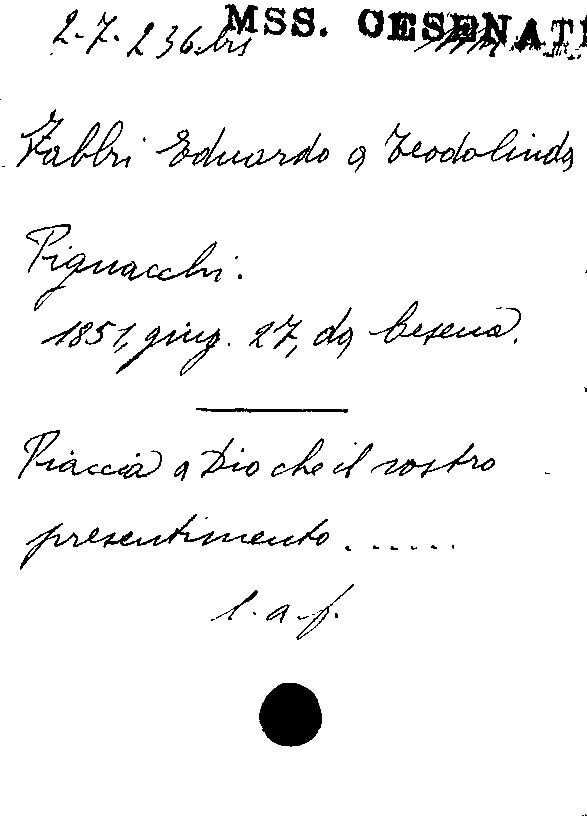 MSS. CESENATI
2-7. 236.bis
Fabbri Eduardo a Teodolinda
Pignacchi.
1851, giug. 27, da Cesena.
Piaccia a Dio che il vostro
presentimento . . . . . .
l. a. f.